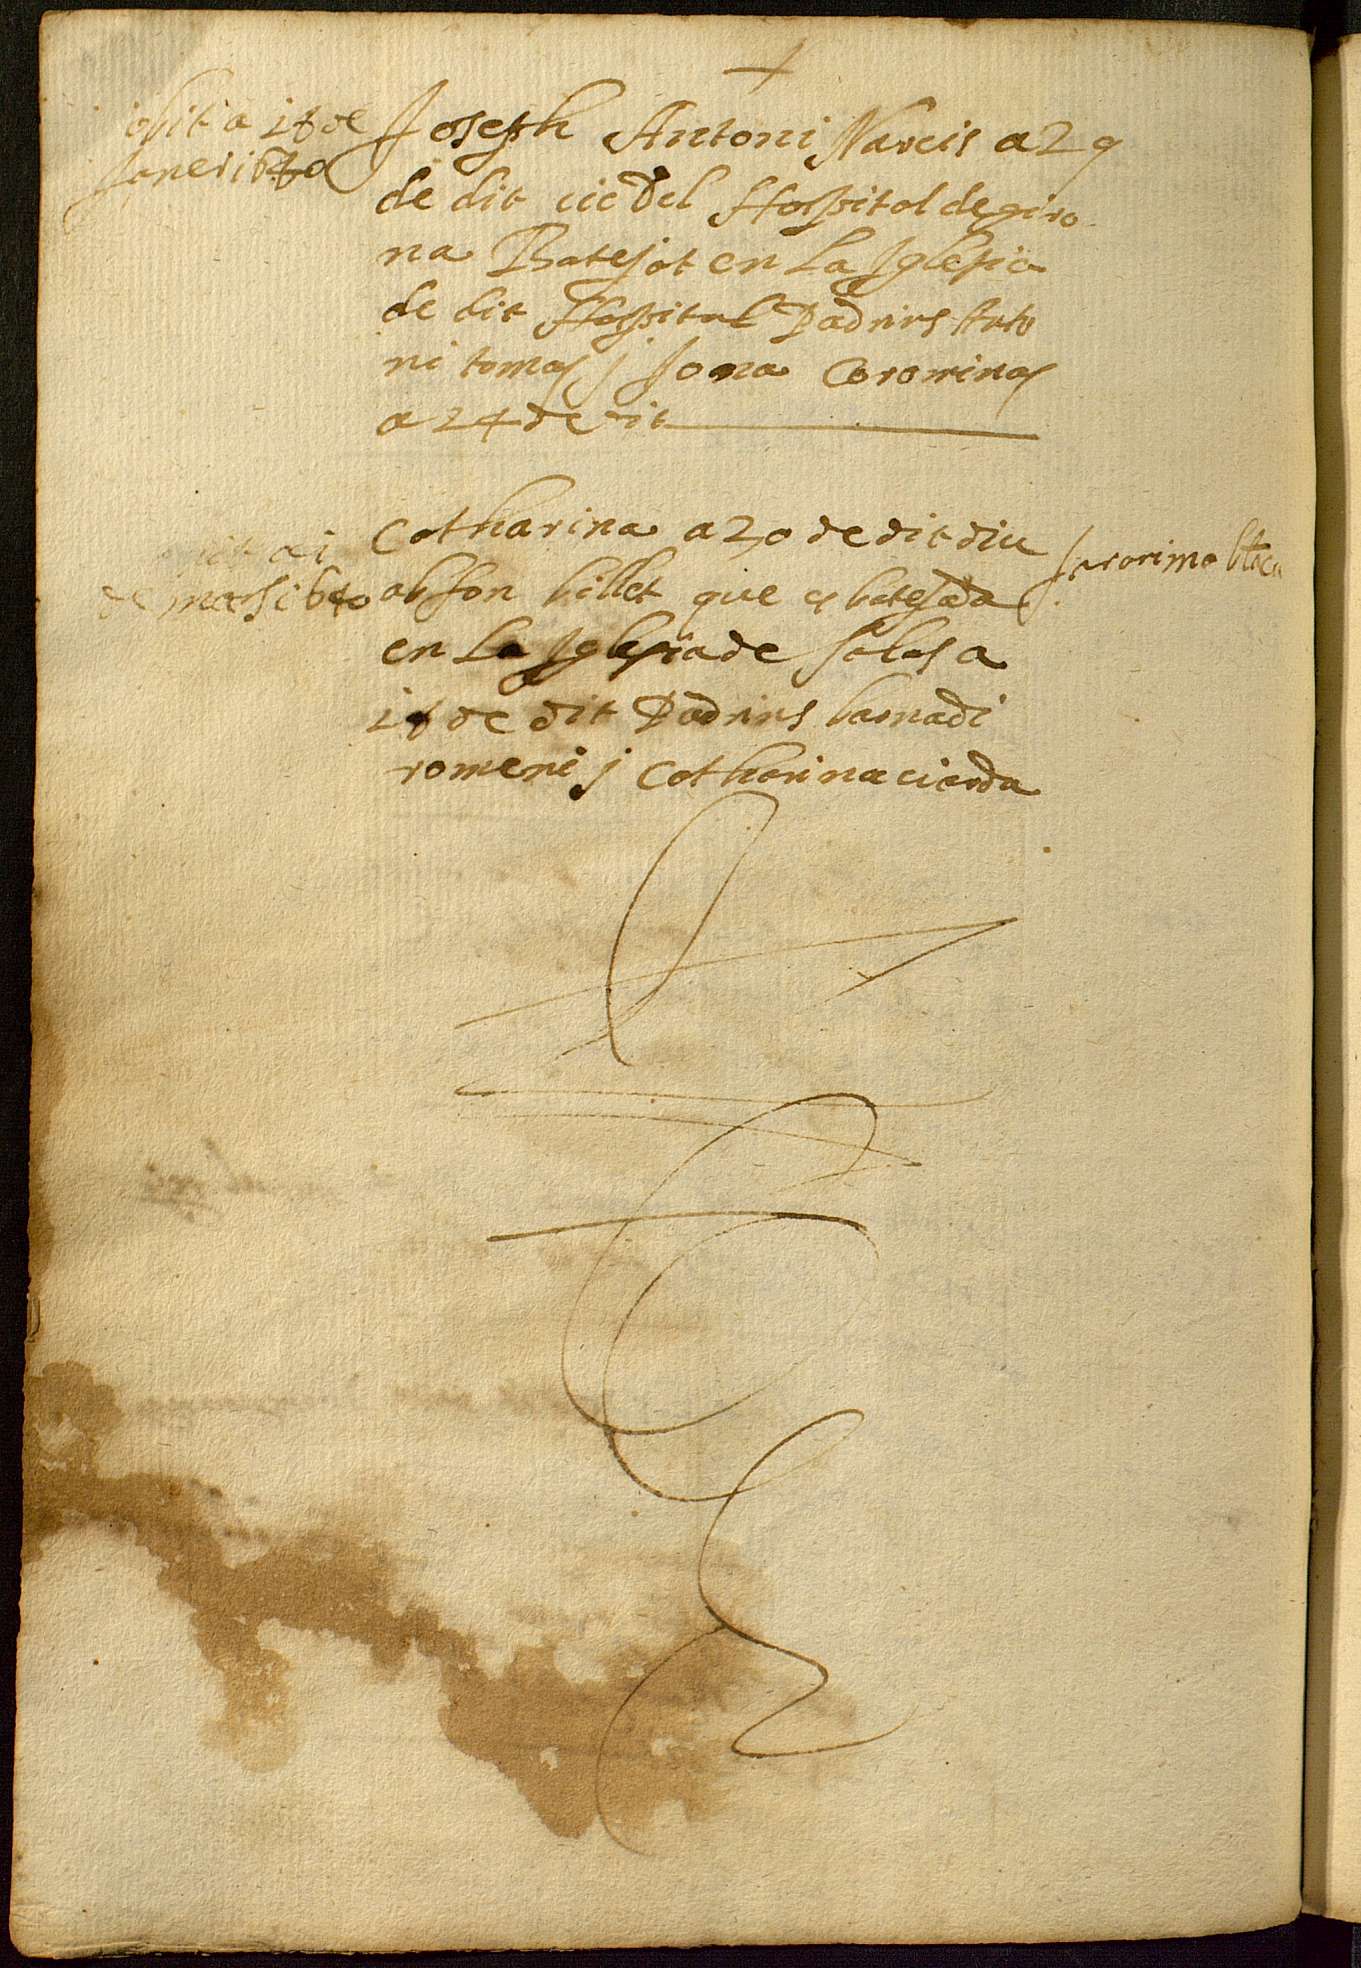 obit a 18 de
Janer 1670
Joseph Antoni Narcis a 29
de dit es del Hospital de giro
na Batejat en La Iglesia
de dit Hospital Padrins Anto
ni tomas j Joana Corominas
a 24 de dit
obit a 1
de mars 1670
Catharina a 20 de dit diu
ab son billet que es batejada
en La Iglesia de salas a
18 de dit Padrins
j Catharina
Jaronima